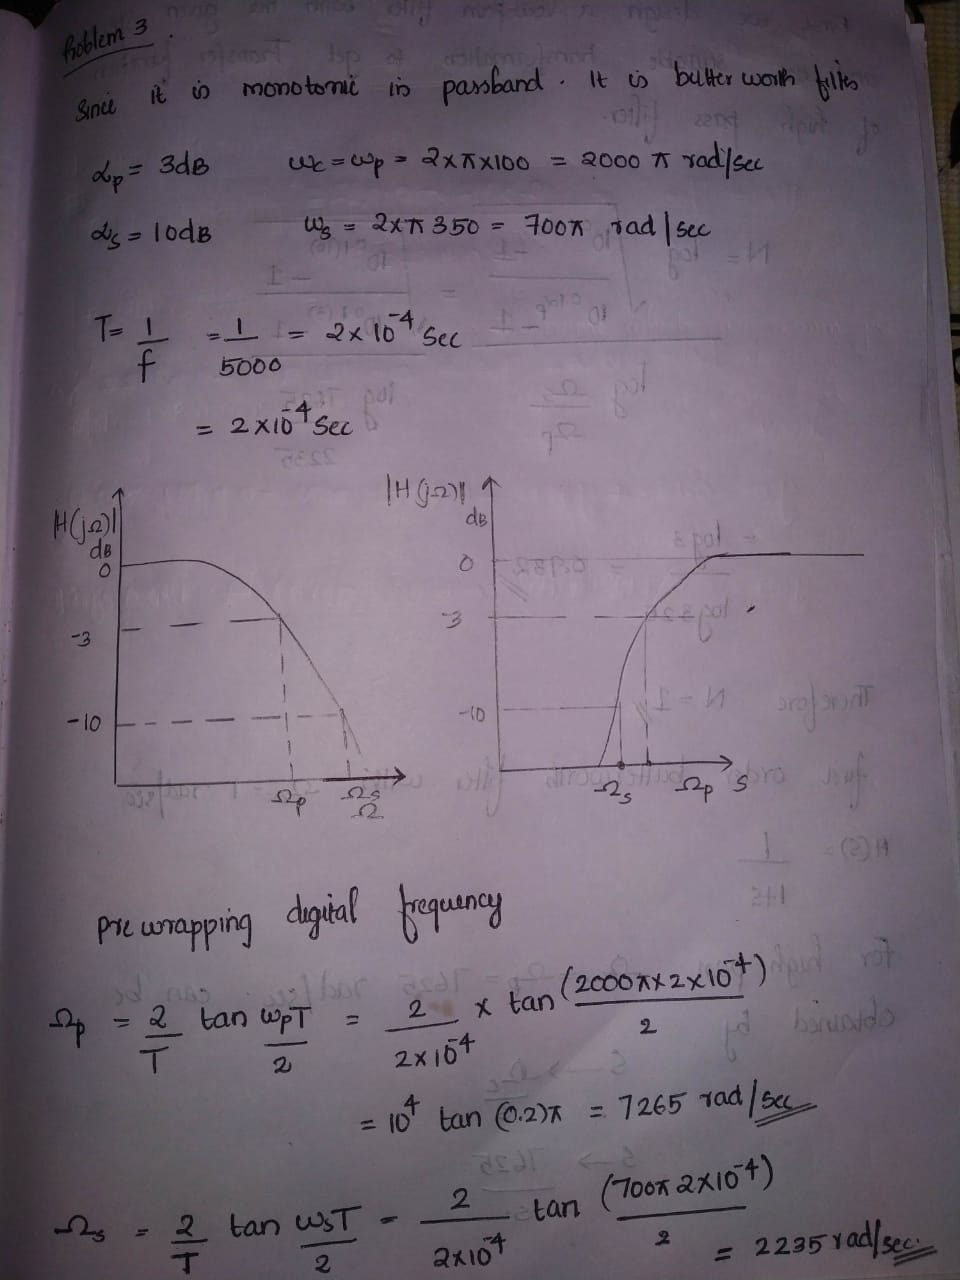 Problem 3.
Since it is monotonic in passband. It is butter worth filter
αp = 3dB ωc = ωp = 2×π×100 = 2000 π rad/sec
αs = 10dB ωs = 2×π 350 = 700π rad/sec
T = 1/f = 1/5000 = 2×10^-4 Sec
= 2×10^-4 Sec
|H(jΩ)| dB
0
-3
-10
Ωp Ωs
Ω
|H(jΩ)| dB
0
-3
-10
Ωs Ωp S
prewrapping digital frequency
Ωp = 2/T tan ωpT/2 = 2/2×10^-4 × tan (2000π×2×10^-4)/2
= 10^4 tan (0.2)π = 7265 rad/sec
Ωs = 2/T tan ωsT/2 - 2/2×10^-4 tan (700π 2×10^-4)/2 = 2235 rad/sec.